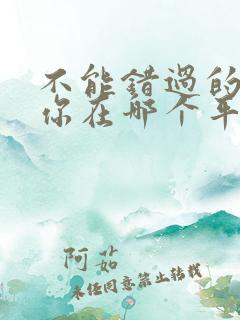 不能错过的
你在那个平
阿茹
未经同意禁止转载